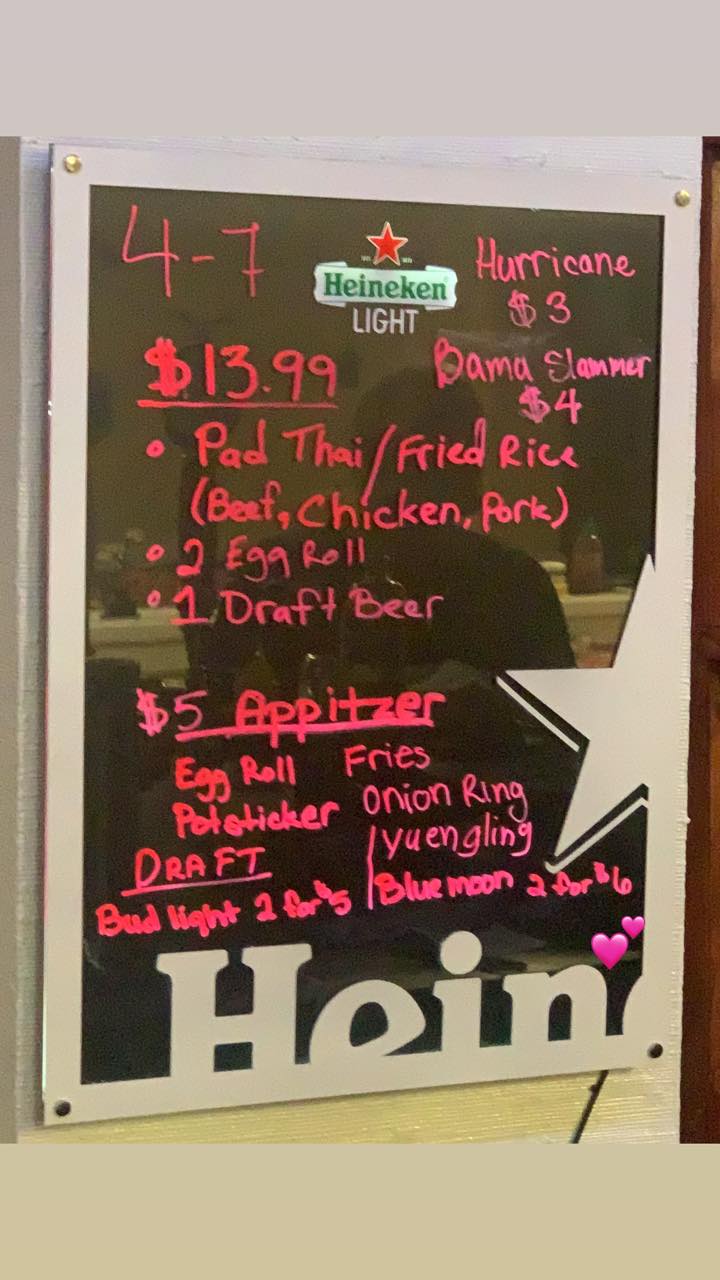 4-7
Heineken
LIGHT
Hurricane
$3
Bama Slammer
$4
$13.99
• Pad Thai/Fried Rice
(Beef, Chicken, Pork)
• 2 Egg Roll
• 1 Draft Beer
$5 Appitzer
Egg Roll
Potsticker
Fries
Onion Ring
DRAFT
Bud light 2 for $5
yuengling
Blue moon 2 for $6
Hein